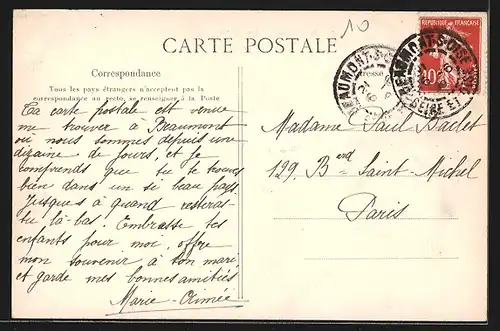 10
CARTE POSTALE
REPUBLIQUE FRANÇAISE
10
BEAUMONT-S-OISE
BEAUMONT-S-OISE
SEINE ET
Correspondance
Adresse
Tous les pays étrangers n'acceptent pas la
correspondance au recto, se renseigner à la Poste
Ta carte postale est venue
me trouver à Beaumont
où nous sommes depuis une
dizaine de jours, et je
comprends que tu te trouves
bien dans un si beau pays.
Jusques à quand resteras-
tu là-bas. Embrasse tes
enfants pour moi, offre
mon souvenir à ton mari
et garde mes bonnes amitiés
Marie-Aimée
Madame Paul
129, Bard Saint-Michel
Paris